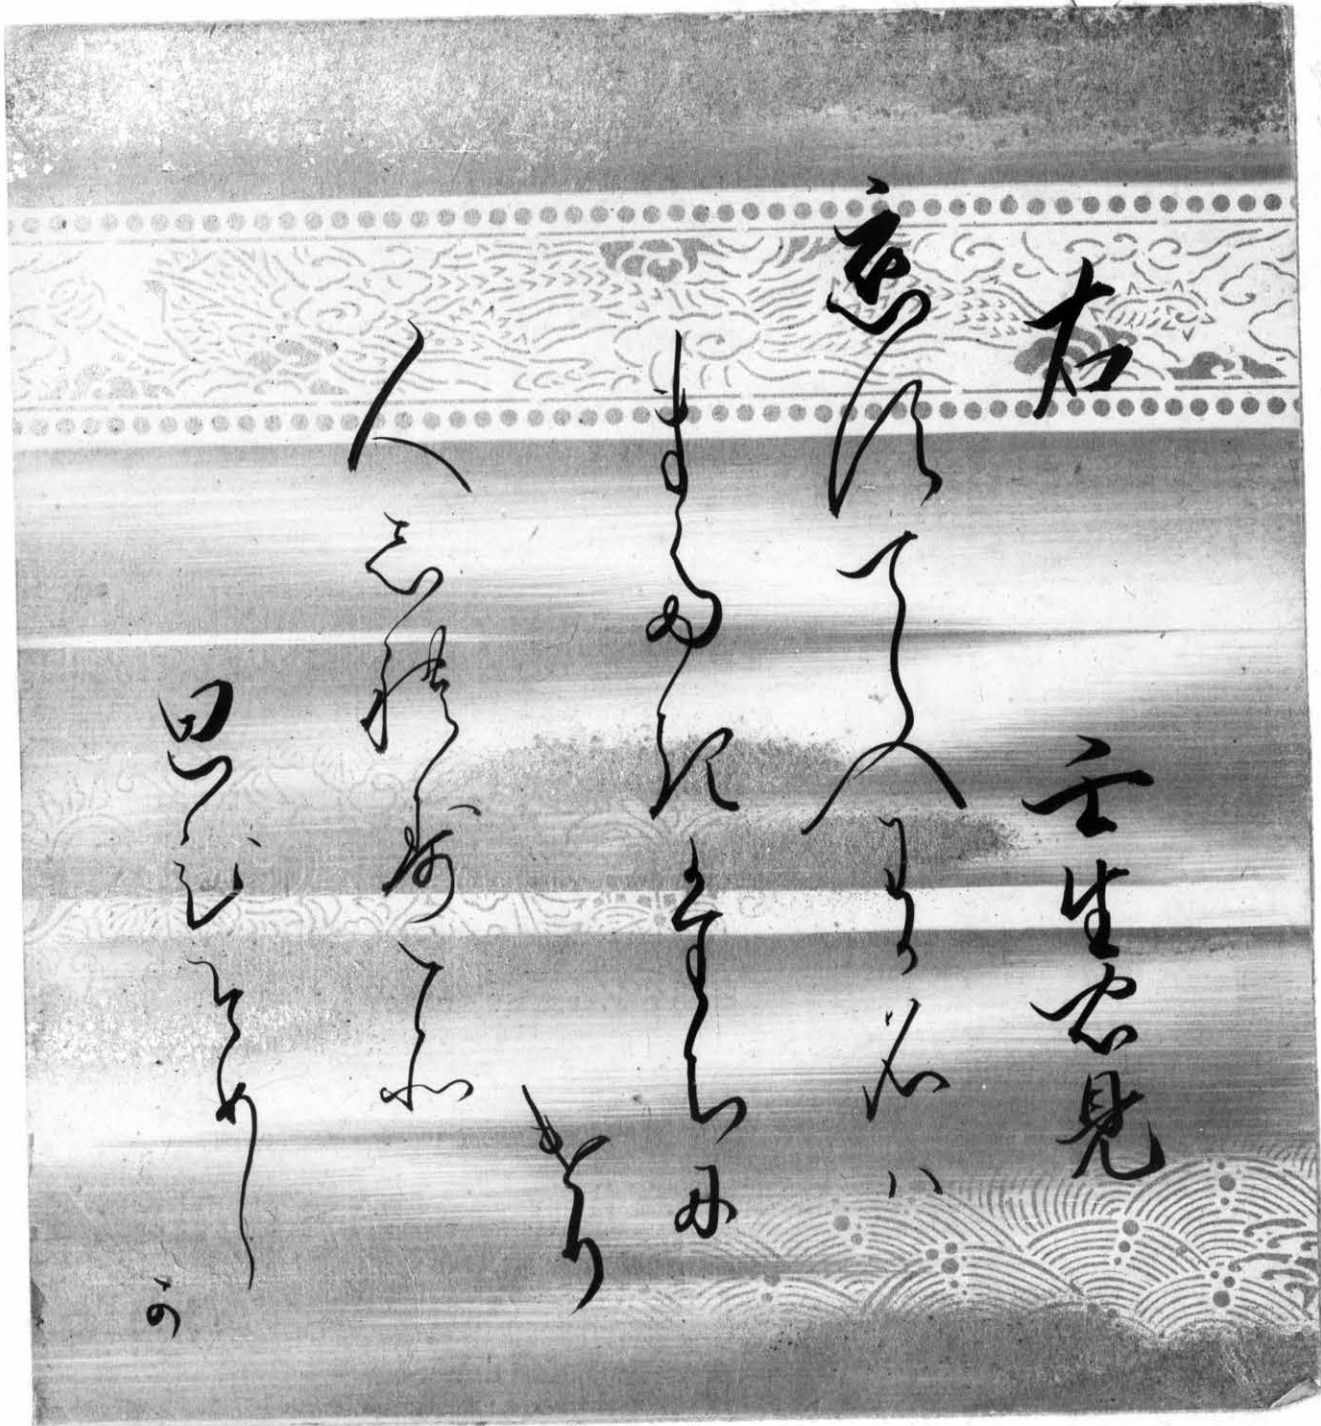 右　壬生忠見
恋すてふわか名ハ
またきたちに
けり
人しれすこそ
思ひそめし
か